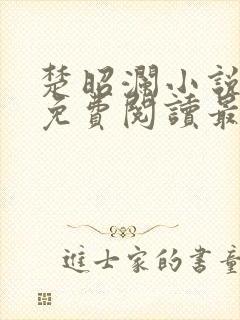 楚昭瀾小說
免費閱讀最
進士家的書童